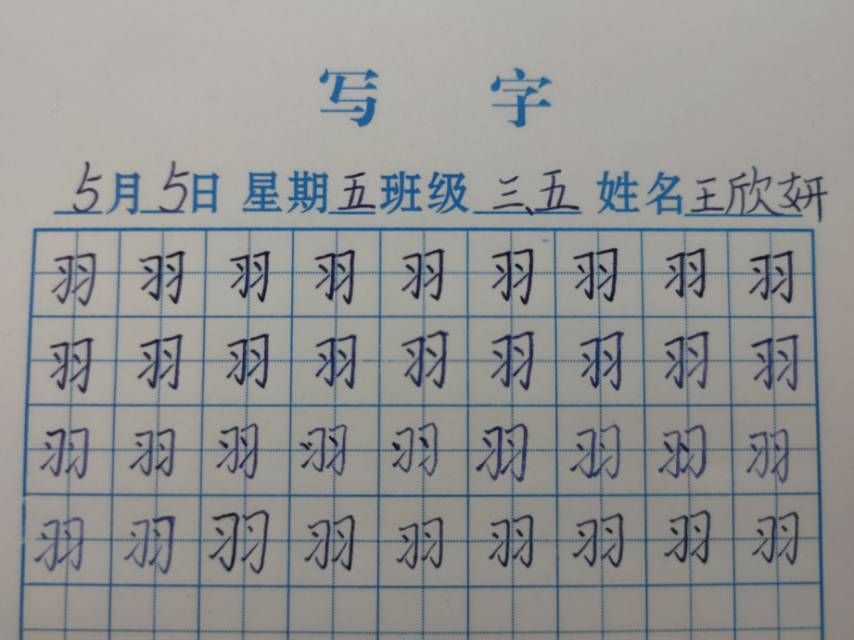 写 字
5月5日 星期五班级三、五 姓名王欣妍
羽羽羽羽羽羽羽羽羽
羽羽羽羽羽羽羽羽羽
羽羽羽羽羽羽羽羽羽
羽羽羽羽羽羽羽羽羽